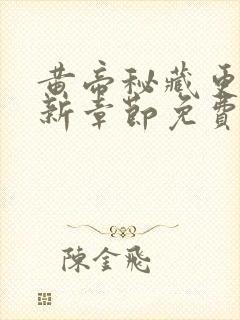 黄帝秘藏更
新章節免費
陳金飛